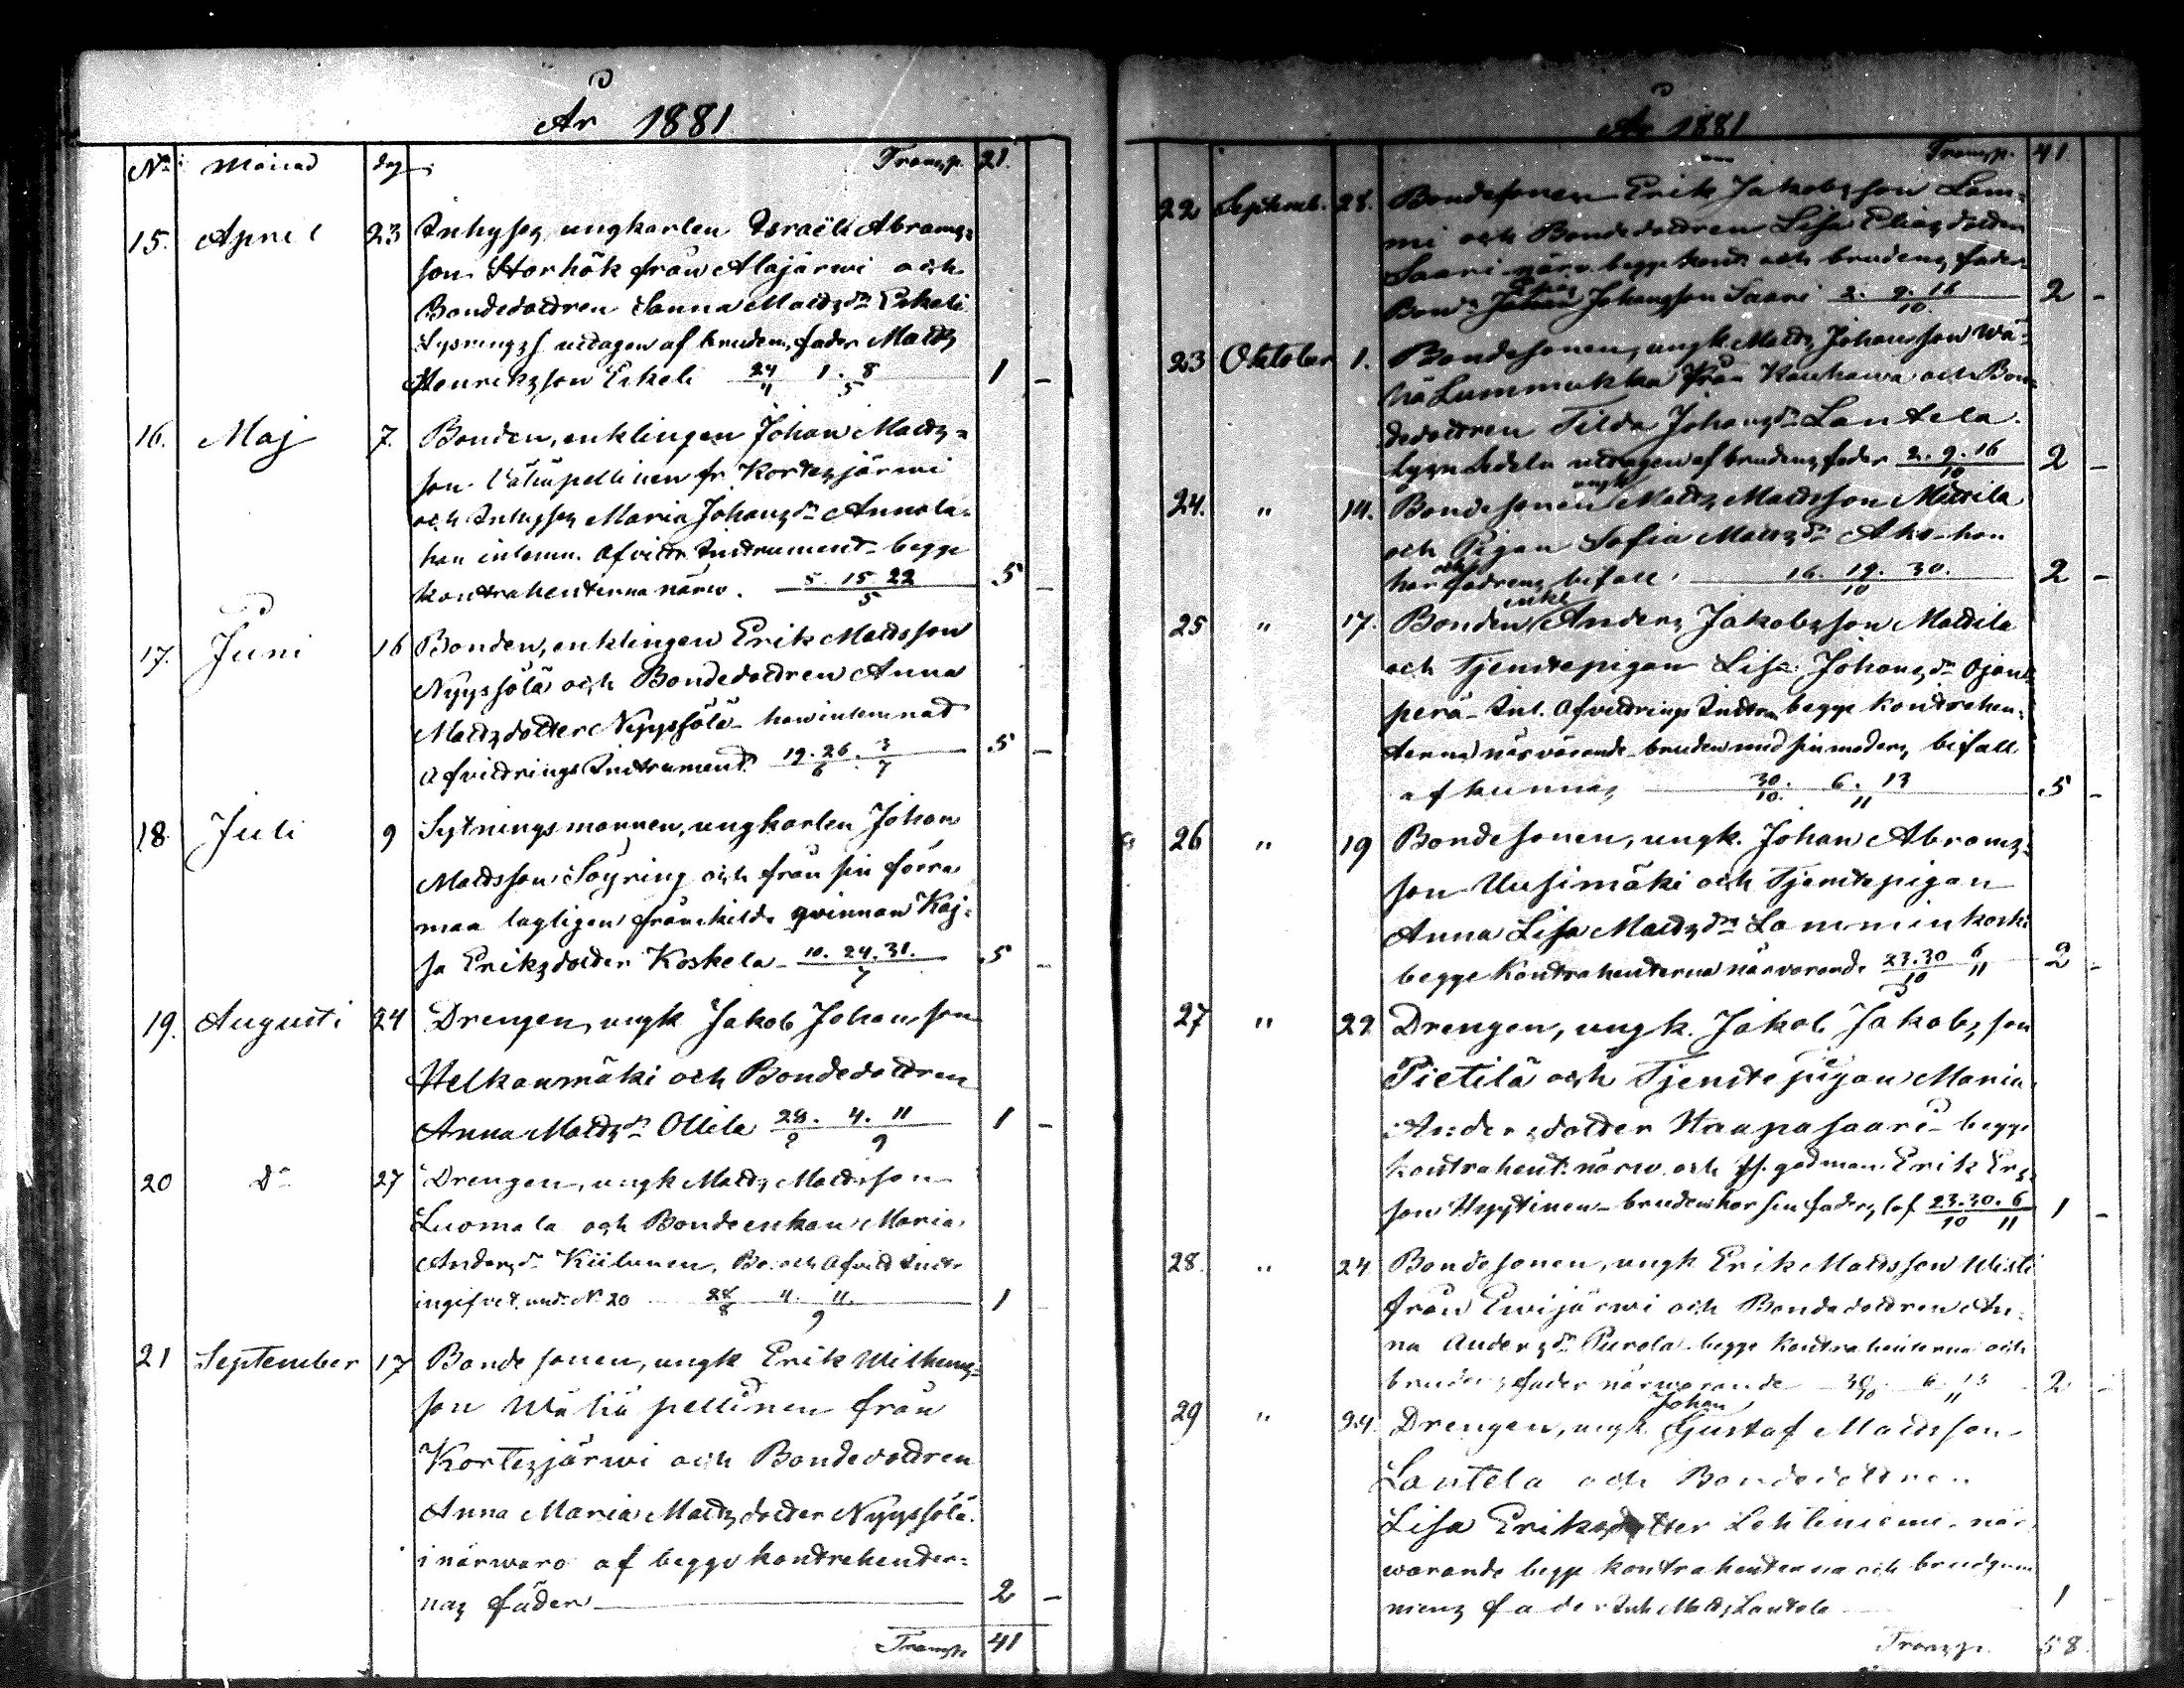 År 1881
No Månad dag Transp. 21.
15. April 23 Inhyses ungkarlen Israël Abrams-
son Storhök från Alajärwi och
Bondedottren Sanna Matts dr Erkeli
Lysningss. uttagen af brudens fader Matts
Henriksson Erkeli 24/4 1. 8/5 1 –
16. Maj 7. Bonden, enklingen Johan Matts-
son Vähäpellinen fr. Kortesjärwi
och Inhyses Maria Johans dr Annala
han inlemn. Afvittr Instrument begge
kontrahenterna närw. 5. 15. 22/5 5 –
17. Juni 16 Bonden, enklingen Erik Mattsson
Nyyssölä och Bondedottren Anna
Mattsdotter Nyyssölä han inlemnat
Afvittrings Instrument 19. 26./6 3/7 5 –
18 Juli 9 Sytningsmannen, ungkarlen Johan
Mattsson Söyring och från sin förra
man lagligen frånskilda qvinnan Kaj-
sa Eriksdotter Koskela 10. 24. 31./7 5 –
19. Augusti 24 Drengen, ungk Jakob Johansson
Helkanmäki och Bondedottren
Anna Matts dr Ollila 28./8 4. 11/9 1 –
20 Do 27 Drengen, ungk Matts Mattsson
Luomala och Bondeenkan Maria
Anders dr Kiilunen, Bo. och Afvitt Instr
ingifvet und. No 20 28/8 4. 11./9 1 –
21 September 17 Bondesonen, ungk Erik Wilhems-
son Wähäpellinen från
Kortesjärwi och Bondedottren
Anna Maria Mattsdotter Nyyssölä.
i närwaro af begge kontrahenter-
nas fäder 2 –
Transp 41
År 1881
Transp. 41
22 Septemb. 28. Bondesonen Erik Jakobsson Lam-
mi och Bondedottren Lisa Eliasdotter
Saari närv. begge kont. och brudens fader
Elias
Bond. Johan Johansson Saari 2. 9. 16/10. 2 –
23 Oktober 1. Bondesonen, ungk. Matts Johansson Wä-
hä Lummukka från Kauhawa och Bon-
dedottren Tilda Johans dr Lantela.
lysn Sedeln uttagen af brudens fader 2. 9. 16/10 2 –
ungk
24. " 14. Bondesonen Matts Mattsson Mattila
och Pigan Sofia Matts dr Aho hon
och
har fadrens bifall. 16. 19. 30./10 2 –
enkl
25 " 17. Bonden Anders Jakobsson Mattila
och Tjenstepigan Lisa Johans dr Ojan-
perä Inl. Afvittrings Instrn begge kontrahen-
terna närvarande bruden med sin moders bifall
afkunnas 30./10. 6. 13/11 5 –
26 " 19 Bondesonen, ungk. Johan Abrams-
son Uusimäki och Tjenstepigan
Anna Lisa Matts dr Lamminkoski
begge Kontrahenterna närvarande 23. 30/10 6/11 2 –
27 " 22 Drengen, ungk. Jakob Jakobsson
Pietilä och Tjenstepigan Maria
Andersdotter Haapasaari begge
kontrahent. närw. och godman. Erik Ers-
son Hyytinen bruden har sin faders lof 23. 30./10 6/11 1 –
28. " 24 Bondesonen, ungk Erik Mattsson Wisti
från Ewijärwi och Bondedottren An-
na Anders dr Purola begge Kontrahenterna och
brudens fader närwarande 30./10 6. 13/11 2 –
Johan
29 " 24. Drengen, ungk. Gustaf Mattsson
Lantela och Bondedottren
Lisa Eriksdotter Lehtiniemi när-
warande begge kontrahenterna och brudgum-
mens fader Inh Matts Lantela 1 –
Transp. 58.